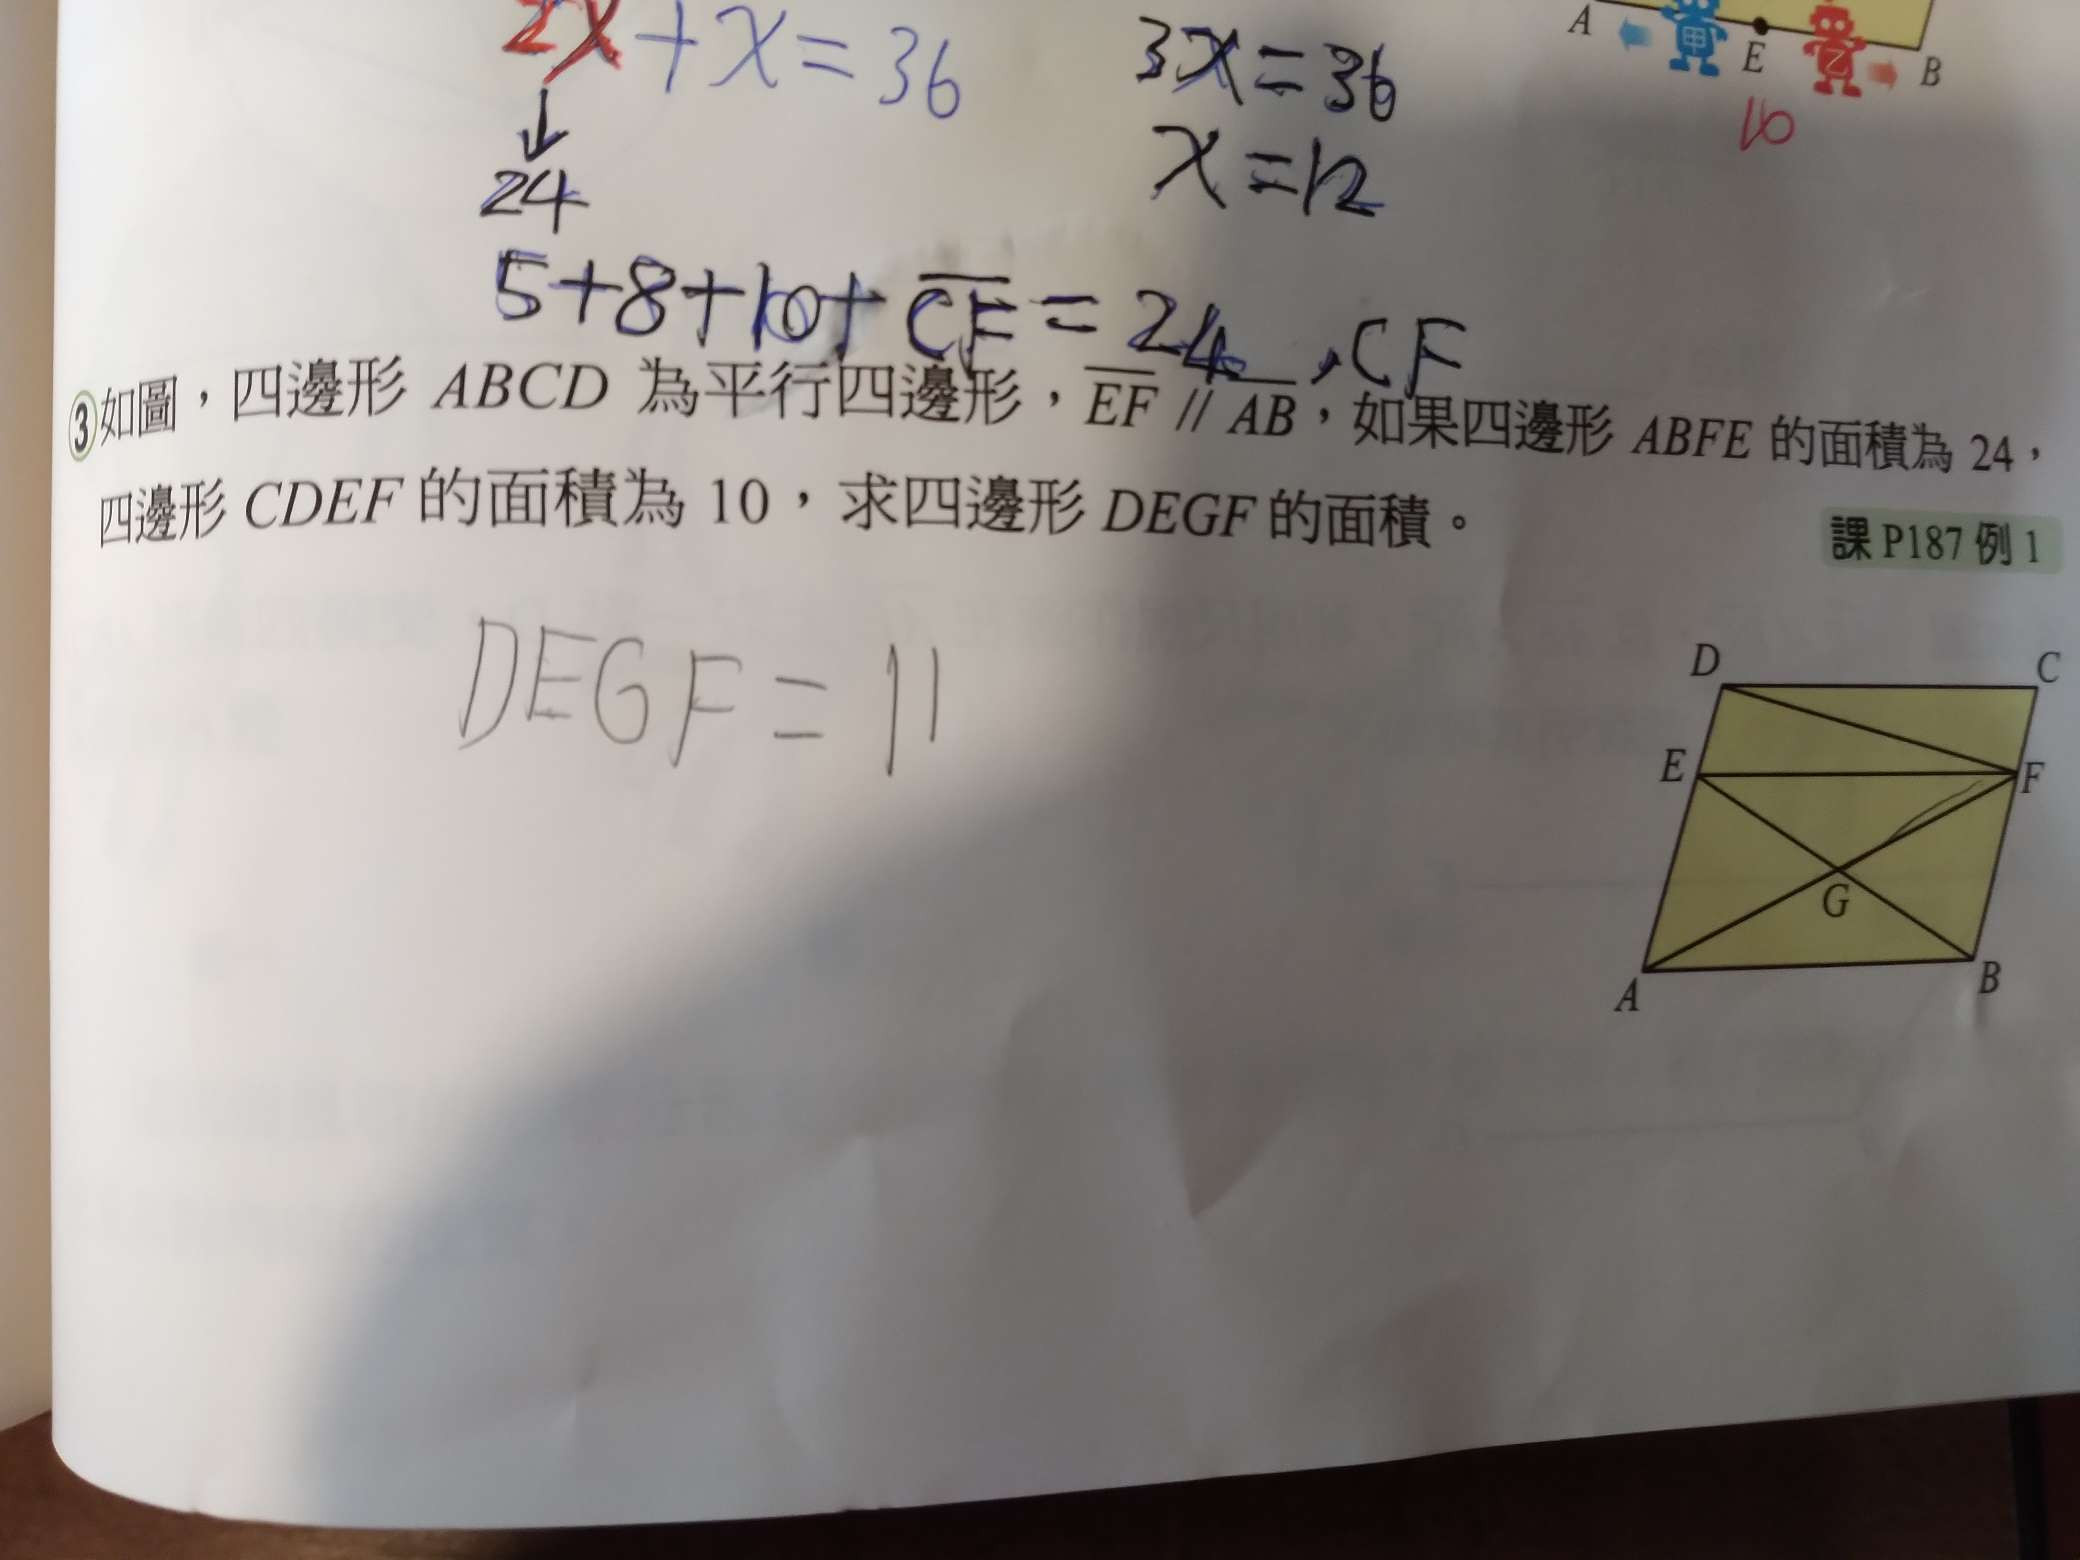 2x+x=36
3x=36
24
x=12
A
甲
E
乙
B
10
5+8+10+CF=24,CF
③如圖,四邊形 ABCD 為平行四邊形,EF // AB,如果四邊形 ABFE 的面積為 24,
四邊形 CDEF 的面積為 10,求四邊形 DEGF 的面積。
課 P187 例 1
DEGF=11
D
C
E
F
G
A
B